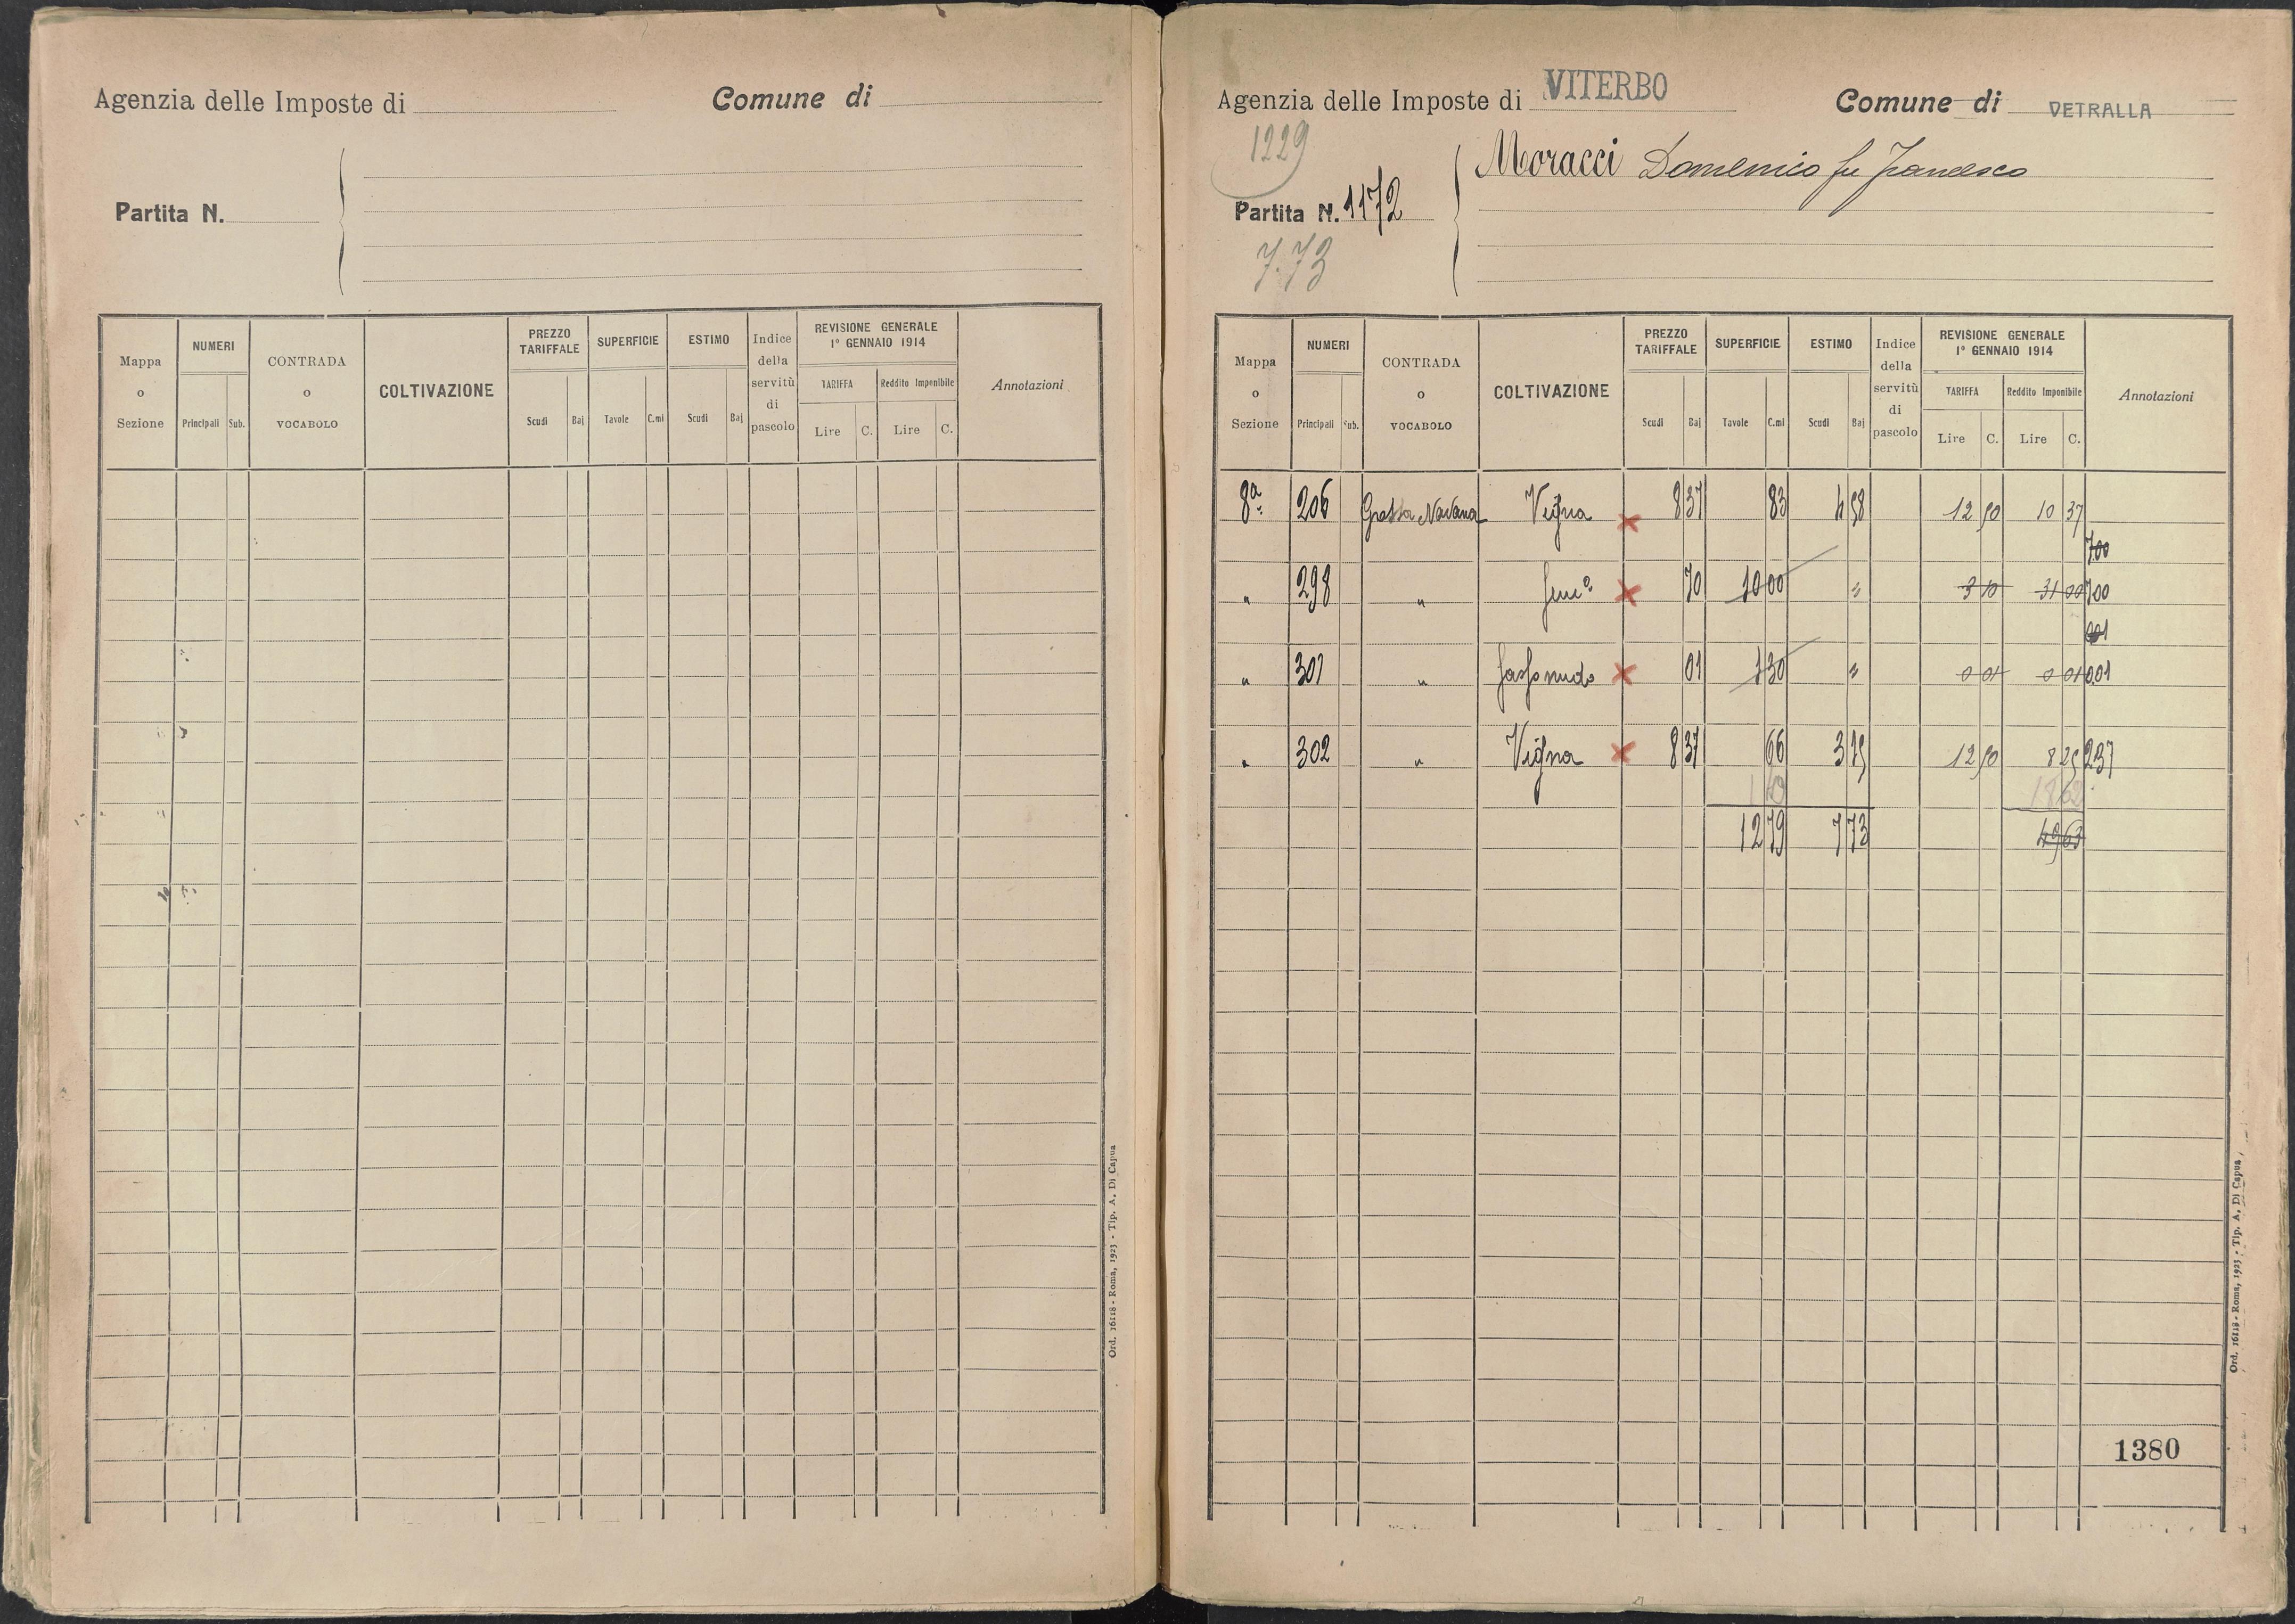 Agenzia delle Imposte di Comune di
Partita N.
Mappa o Sezione NUMERI Principali Sub. CONTRADA o VOCABOLO COLTIVAZIONE PREZZO TARIFFALE Scudi Baj SUPERFICIE Tavole C.mi ESTIMO Scudi Baj Indice della servitù di pascolo REVISIONE GENERALE 1° GENNAIO 1914 TARIFFA Lire C. Reddito Imponibile Lire C. Annotazioni
Ord. 16118 - Roma, 1923 - Tip. A. Di Capua
Agenzia delle Imposte di VITERBO Comune di VETRALLA
1229
Moracci Domenico fu Francesco
Partita N. 1172
7.73
Mappa o Sezione NUMERI Principali Sub. CONTRADA o VOCABOLO COLTIVAZIONE PREZZO TARIFFALE Scudi Baj SUPERFICIE Tavole C.mi ESTIMO Scudi Baj Indice della servitù di pascolo REVISIONE GENERALE 1° GENNAIO 1914 TARIFFA Lire C. Reddito Imponibile Lire C. Annotazioni
8a 206 Grotta Vigna 8 37 83 4 58 12 50 10 37
700
" 298 " 70 10 00 " 3 10 31 00 700
001
" 301 " Sasso nudo 01 1 30 " 0 01 0 01 001
" 302 " Vigna 8 37 66 3 15 12 50 8 25 237
18 62
12 79 7 73 49 63
1380
Ord. 16118 - Roma, 1923 - Tip. A. Di Capua